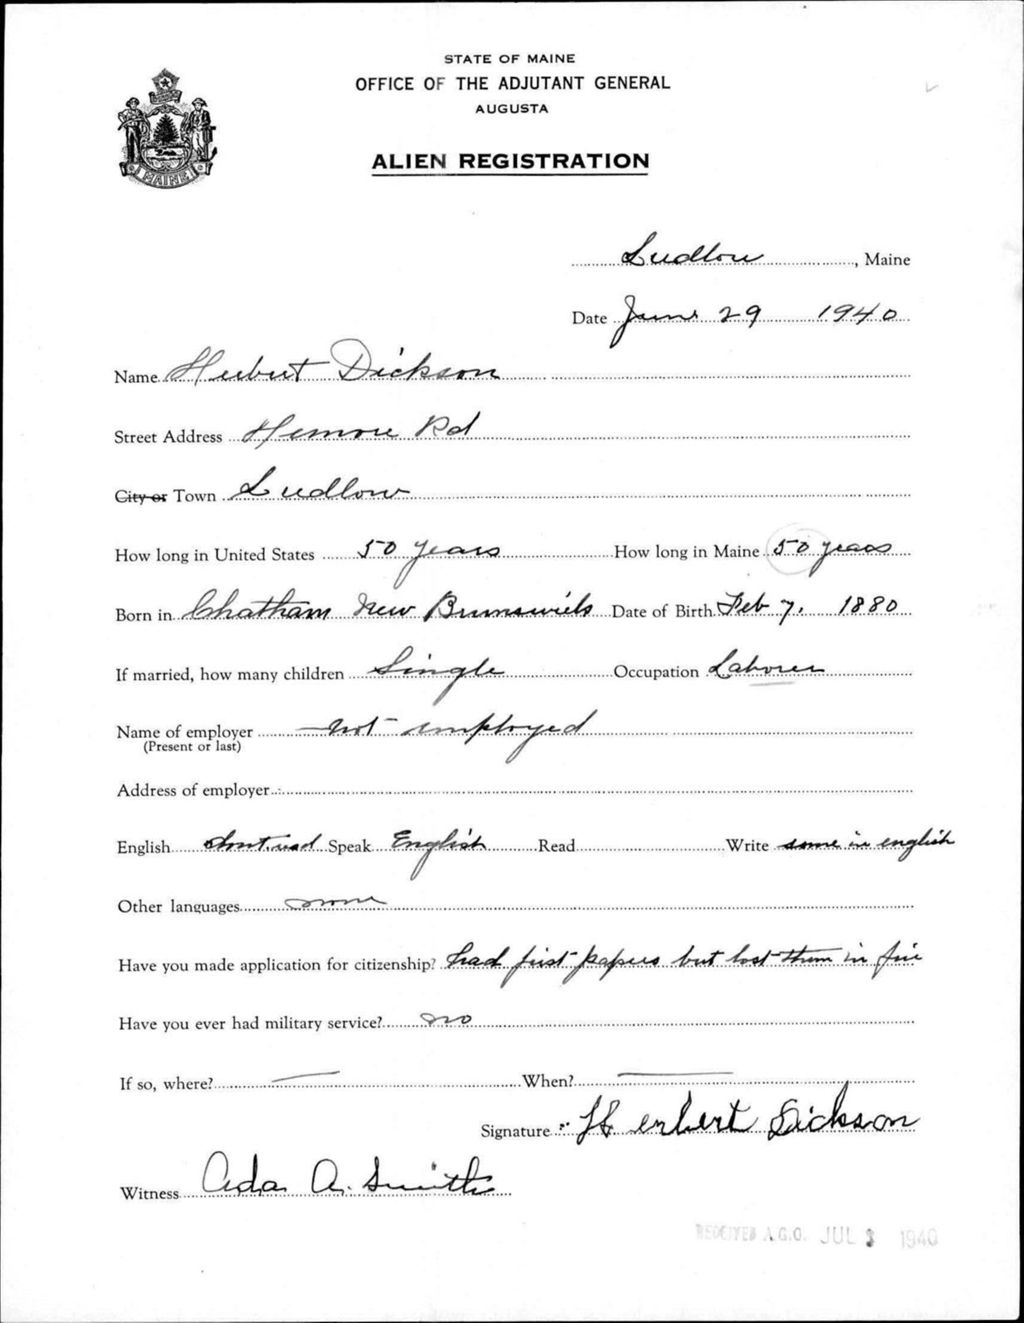 STATE OF MAINE
OFFICE OF THE ADJUTANT GENERAL
AUGUSTA
ALIEN REGISTRATION
MAINE
Ludlow, Maine
Date June 29 1940
Name Herbert Dickson
Street Address Rd
City or Town Ludlow
How long in United States 50 years How long in Maine 50 years
Born in Chatham New Brunswick Date of Birth Feb 7, 1880
If married, how many children Single Occupation Laborer
Name of employer not employed
(Present or last)
Address of employer
English Speak English Read Write some in english
Other languages none
Have you made application for citizenship? had first papers but lost them in fire
Have you ever had military service? no
If so, where? — When? —
Signature Herbert Dickson
Witness Ada A. Smith
RECEIVED A.G.O. JUL 1940